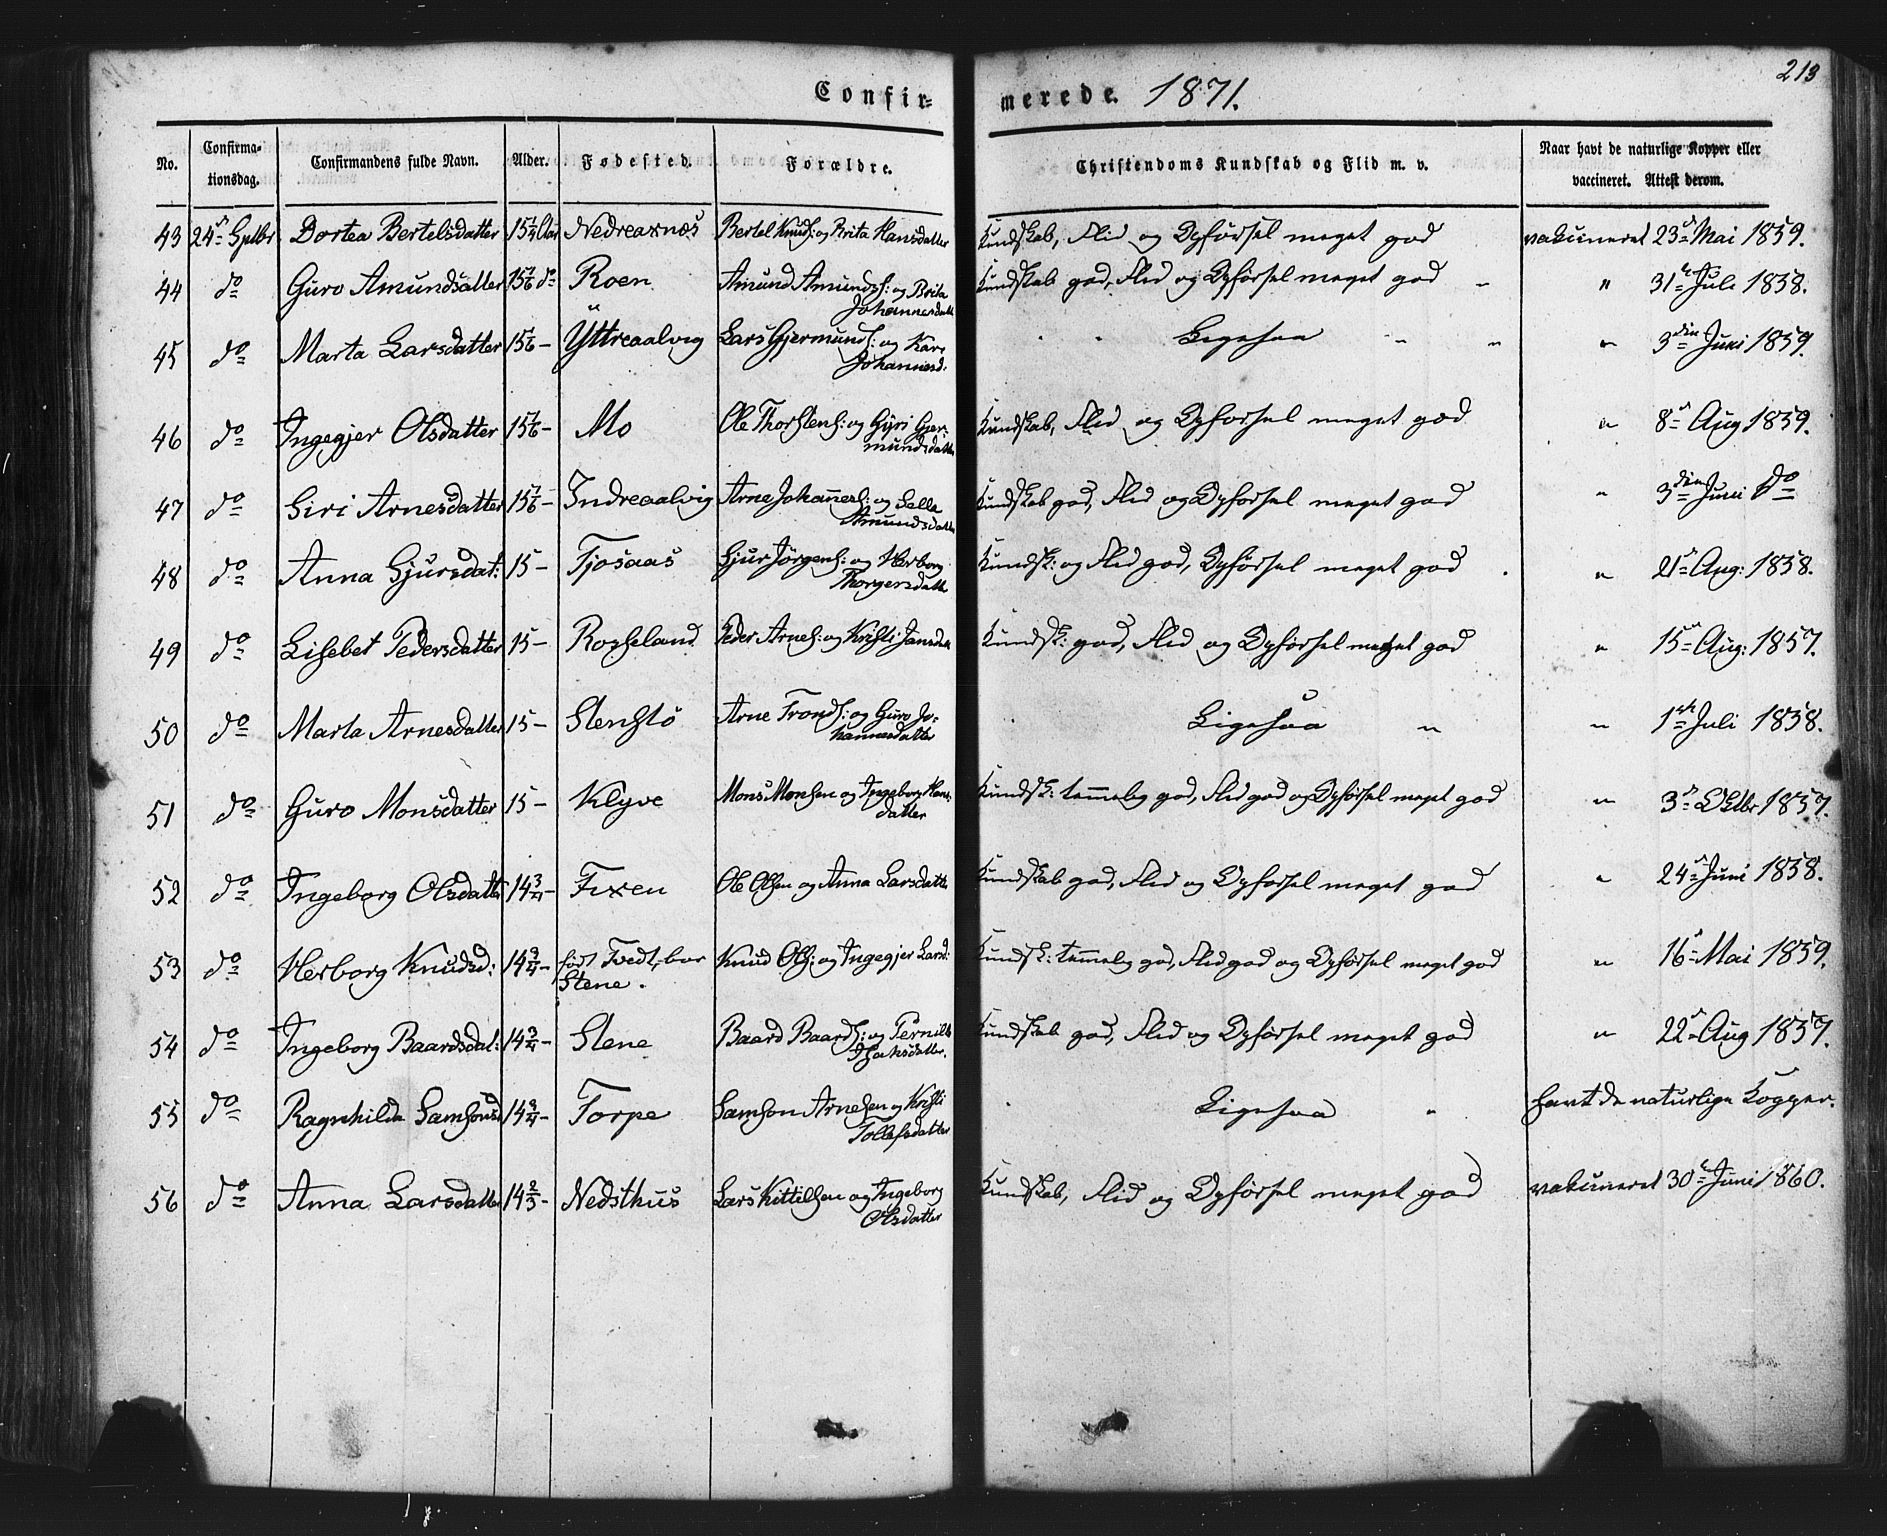 213
Confir- merede. 1871.
No. Confirma-tionsdag. Confirmandens fulde Navn. Alder. Fødested. Forældre. Christendoms Kundskab og Flid m. v. Naar havt de naturlige Kopper eller vaccineret. Attest derom.
43 24de Sptbr. Dortea Bertelsdatter 15 1/4 Aar Nedreaxnes Bertel Knuds: og Brita Hansdatter Kundskab, Flid og Opførsel meget god vakuineret 23de Mai 1859.
44 do Guro Amundsdatter 15 1/6 do Roen Amund Amunds: og Brita Johannesdatt Kundskab god, Flid og Opførsel meget god " 31te Juli 1858.
45 do Marta Larsdatter 15 1/6 - Yttreaalvig Lars Gjermunds: og Kari Johannesd. Ligesaa " 3die Juni 1859.
46 do Ingegjer Olsdatter 15 1/6 - Mo Ole Thorstens: og Gyri Gjermundsdatter Kundskab, Flid og Opførsel meget god " 8de Aug 1859.
47 do Siri Arnesdatter 15 1/6 - Indreaalvig Arne Johannes: og Salla Amundsdatter Kundskab god, Flid og Opførsel meget god " 3die Juni do
48 do Anna Sjursdat: 15 - Tjosaas Sjur Jørgens: og Herborg Thorgersdatter Kundsk: og Flid god, Opførsel meget god " 21de Aug: 1858.
49 do Lisebet Pedersdatter 15 - Rogseland Peder Arnes: og Kristi Jansdatt Kundsk: god, Flid og Opførsel meget god " 15de Aug: 1857.
50 do Marta Arnesdatter 15 - Stenstø Arne Tronds: og Guro Johannesdatter Ligesaa " " 1ste Juli 1858.
51 do Guro Monsdatter 15 - Klyve Mons Monsen og Ingeborg Hansdatter Kundsk: temmelig god, Flid god og Opførsel meget god " 3de Oktbr 1857.
52 do Ingeborg Olsdatter 14 3/4 - Fixen Ole Olsen og Anna Larsdatter Kundskab god, Flid og Opførsel meget god " 24de Juni 1858.
53 do Herborg Knudsd: 14 3/4 - født Tvedt, bor Stene. Knud Ols: og Ingegjer Larsd: Kundsk: temmelig god, Flid god og Opførsel meget god " 16de Mai 1859.
54 do Ingeborg Baardsdat: 14 3/4 - Stene Baard Baards: og Pernille Kundskab god, Flid og Opførsel meget god " 22de Aug 1857.
55 do Ragnhilda Samsonsd 14 3/4 - Torpe Samson Arnesen og Kristi Tollefsdatter Ligesaa " havt de naturlige Kopper.
56 do Anna Larsdatter 14 2/3 - Nedsthus Lars Kittilsen og Ingeborg Olsdatter Kundskab, Flid og Opførsel meget god vakuineret 30te Juni 1860.